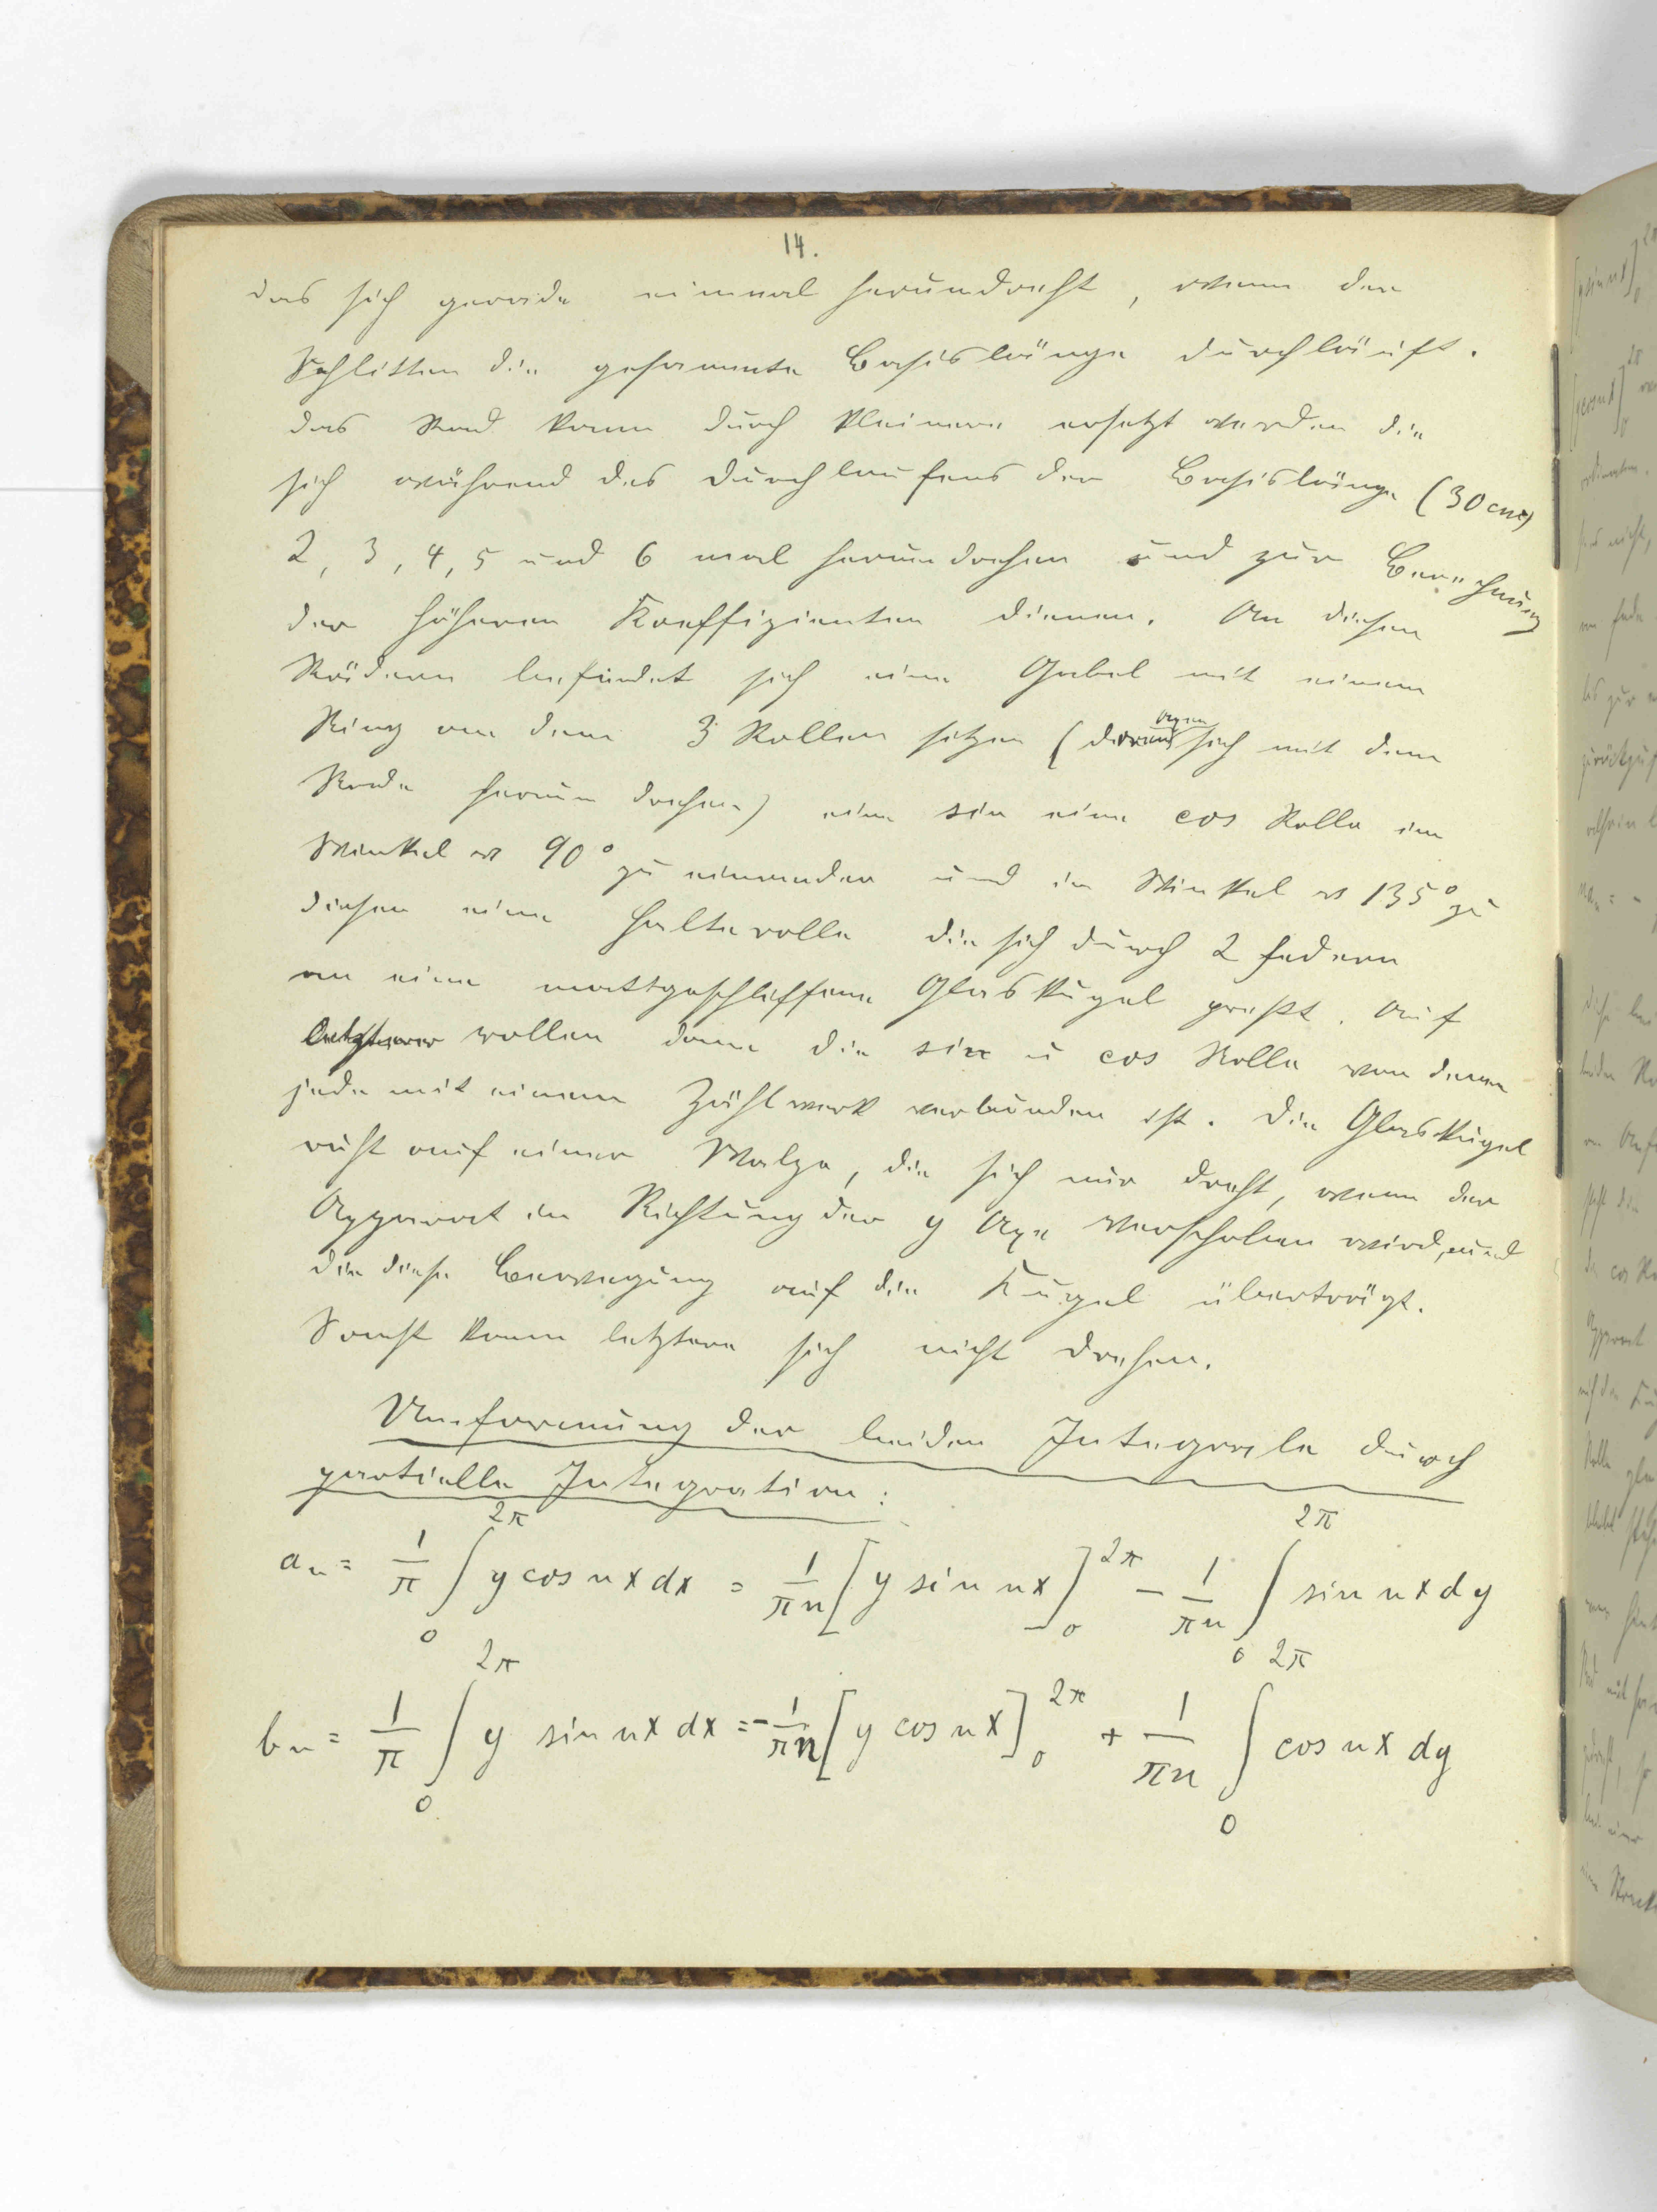 14.
das sich gerade einmal herumdreht, wenn der
Schlitten die gesammte Basislänge durchläuft.
das Rad kann durch kleinere ersetzt werden die
sich während des Durchlaufens der Basislänge (30cm)
2, 3, 4, 5 und 6 mal herumdrehen und zur Berechnung
der höheren Koeffizienten dienen. An diesen
Rädern befindet sich eine Gabel mit einem
Ring an dem 3 Rollen sitzen (deren Axen sich mit dem
Rade herum drehen) eine sin eine cos Rolle im
Winkel v 90° zu einander und im Winkel v 135° zu
diesen eine Halterolle die sich durch 2 Federn
an eine mattgeschliffene Glaskugel presst. Auf
letzterer rollen dann die sin u cos Rolle von denen
jede mit einem Zählwerk verbunden ist. Die Glaskugel
ruht auf einer Walze, die sich nur dreht, wenn der
Apparat in Richtung der y Axe verschoben wird, und
die diese Bewegung auf die Kugel überträgt.
Sonst kann letztere sich nicht drehen.
Umformung der beiden Integrale durch
partielle Integration:
a_n = 1/π ∫_0^{2π} y cos nx dx = 1/πn [y sin nx]_0^{2π} - 1/πn ∫_0^{2π} sin nx dy
b_n = 1/π ∫_0^{2π} y sin nx dx = -1/πn [y cos nx]_0^{2π} + 1/πn ∫_0^{2π} cos nx dy